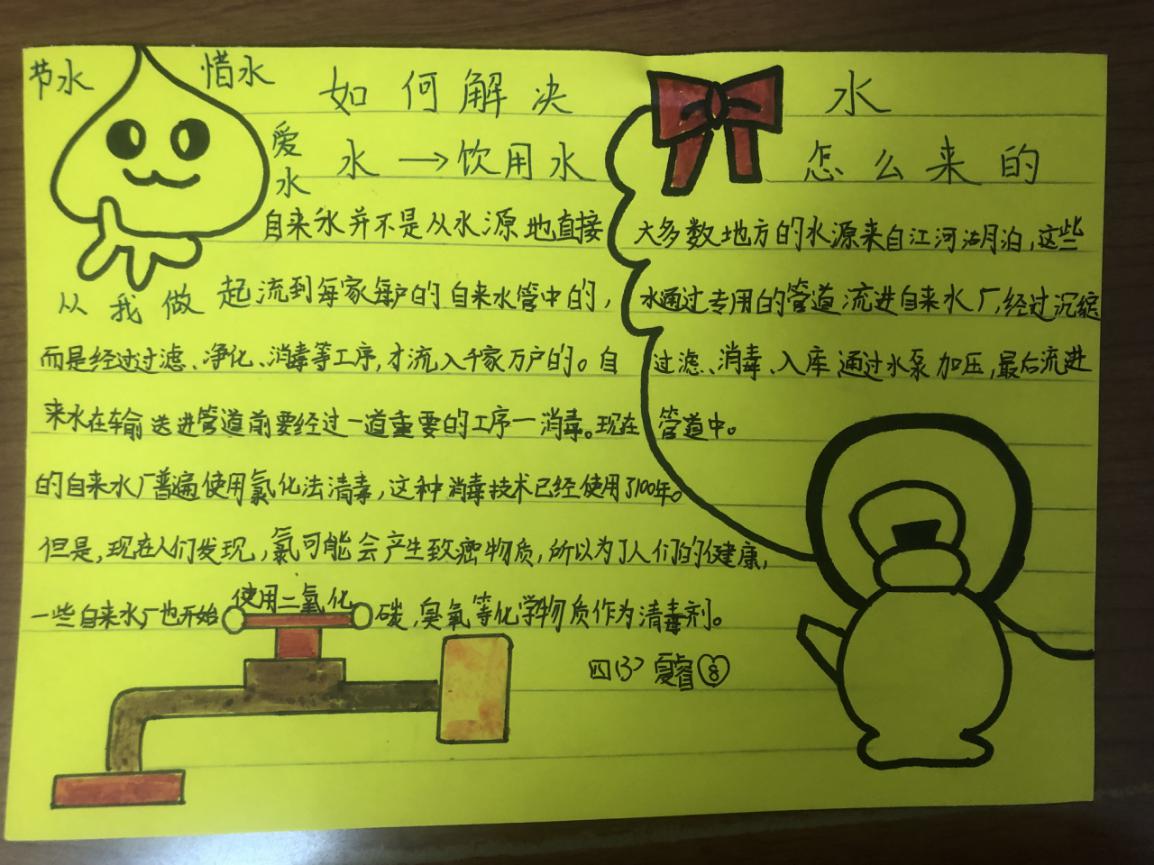 节水
惜水
爱水
从我做
如何解决
水→饮用水
自来水并不是从水源地直接
起流到每家每户的自来水管中的，
而是经过过滤、净化、消毒等工序，才流入千家万户的。自
来水在输送进管道前要经过一道重要的工序一消毒。现在
的自来水厂普遍使用氯化法清毒，这种消毒技术已经使用了100年。
但是，现在人们发现，氯可能会产生致癌物质，所以为了人们的健康，
一些自来水厂也开始使用二氧化碳，臭氧等化学物质作为清毒剂。
水
怎么来的
大多数地方的水源来自江河湖泊，这些
水通过专用的管道流进自来水厂，经过沉
过滤、消毒、入库通过水泵加压，最后流进
管道中。
四(3) 夏睿 8